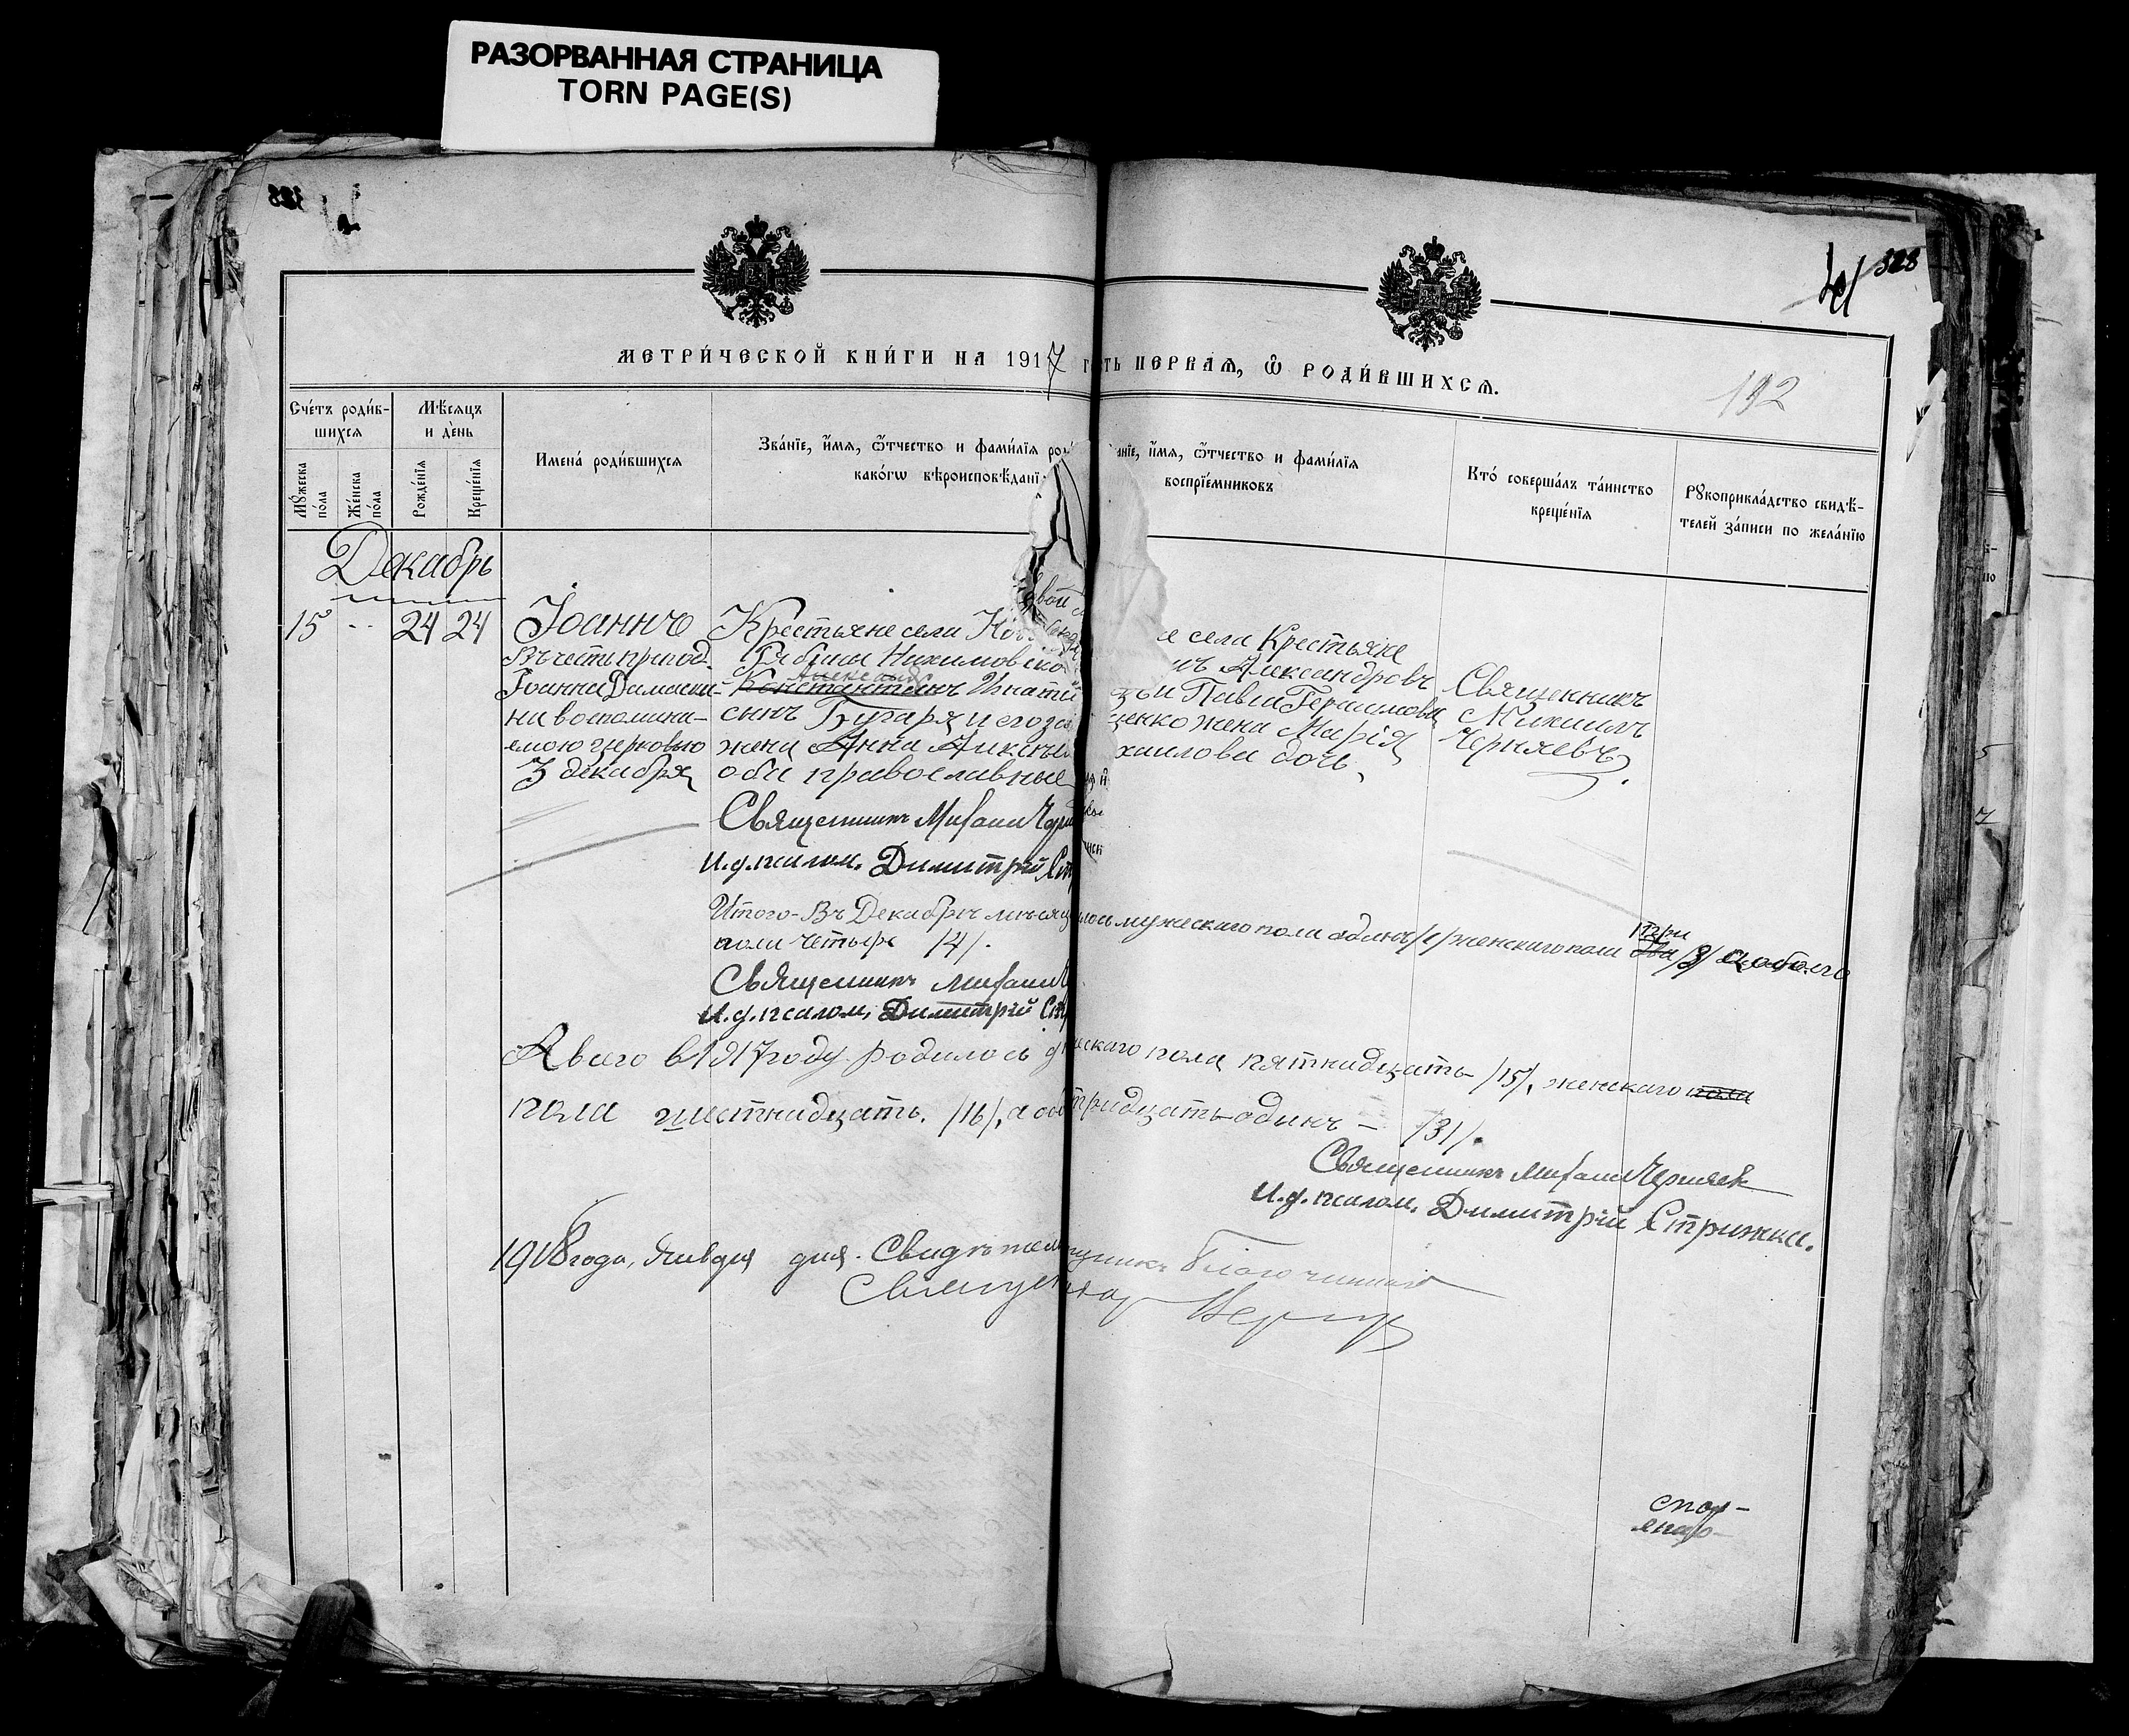 РАЗОРВАННАЯ СТРАНИЦА
TORN PAGE(S)
328
192
МЕТРИ́ЧЕСКОЙ КНИ́ГИ НА 1917 г
ть ПЕРВАЯ, Ѽ РОДИ́ВШИХСЯ.
Сче́тъ роди́в-
шихся
Мѣсяцъ
и де́нь
Мꙋ́жеска по́ла
Же́нска по́ла
Рожде́нїя
Креще́нїя
Имена̀ роди́вшихся
Зва́нїе, и҆́мя, ѻ҆́тчество и фами́лїя ро
како́гѡ вѣроисповѣ́данї
а́нїе, и҆́мя, ѻ҆́тчество и фами́лїя
воспрїе́мниковъ
Кто̀ соверша́лъ та́инство
креще́нїя
Рꙋкоприкла́дство свидѣ́-
телей за́писи по жела́нїю
Декабрь
15 -- 24 24
Іоаннъ
Въ честь препод.
Іоанна Дамаски-
на воспомина-
емою церковью
3 декабря
Крестьяне села
Александръ
Константинъ Игнаті
сынъ Бугаря и его за
жена Анна
оба православные
е села Крестьяне
нъ Александровъ
и Павла Герасимова
ценко жена Марія
хаилова дочь
Священникъ
Михаилъ
Черняевъ.
Священникъ Михаилъ Черн
И.д. псалом. Димитрій Ст
Итого - Въ Декабрѣ мѣсяц
лось мужескаго пола одинъ /1/ женскаго пола три
два /3/ а обоего
пола четыре /4/.
Священникъ Михаилъ
И.д. псалом. Димитрій Ст
А всего в 1917 году родилось
ескаго пола пятнадцать /15/, женскаго пола
пола шестнадцать. /16/, а обо
тридцать одинъ - /31/.
Священникъ Михаилъ Черняевъ
И.д. псалом. Димитрій Стрижка.
1918 года, Января дня. Свидѣтел
Благочинный
Священник